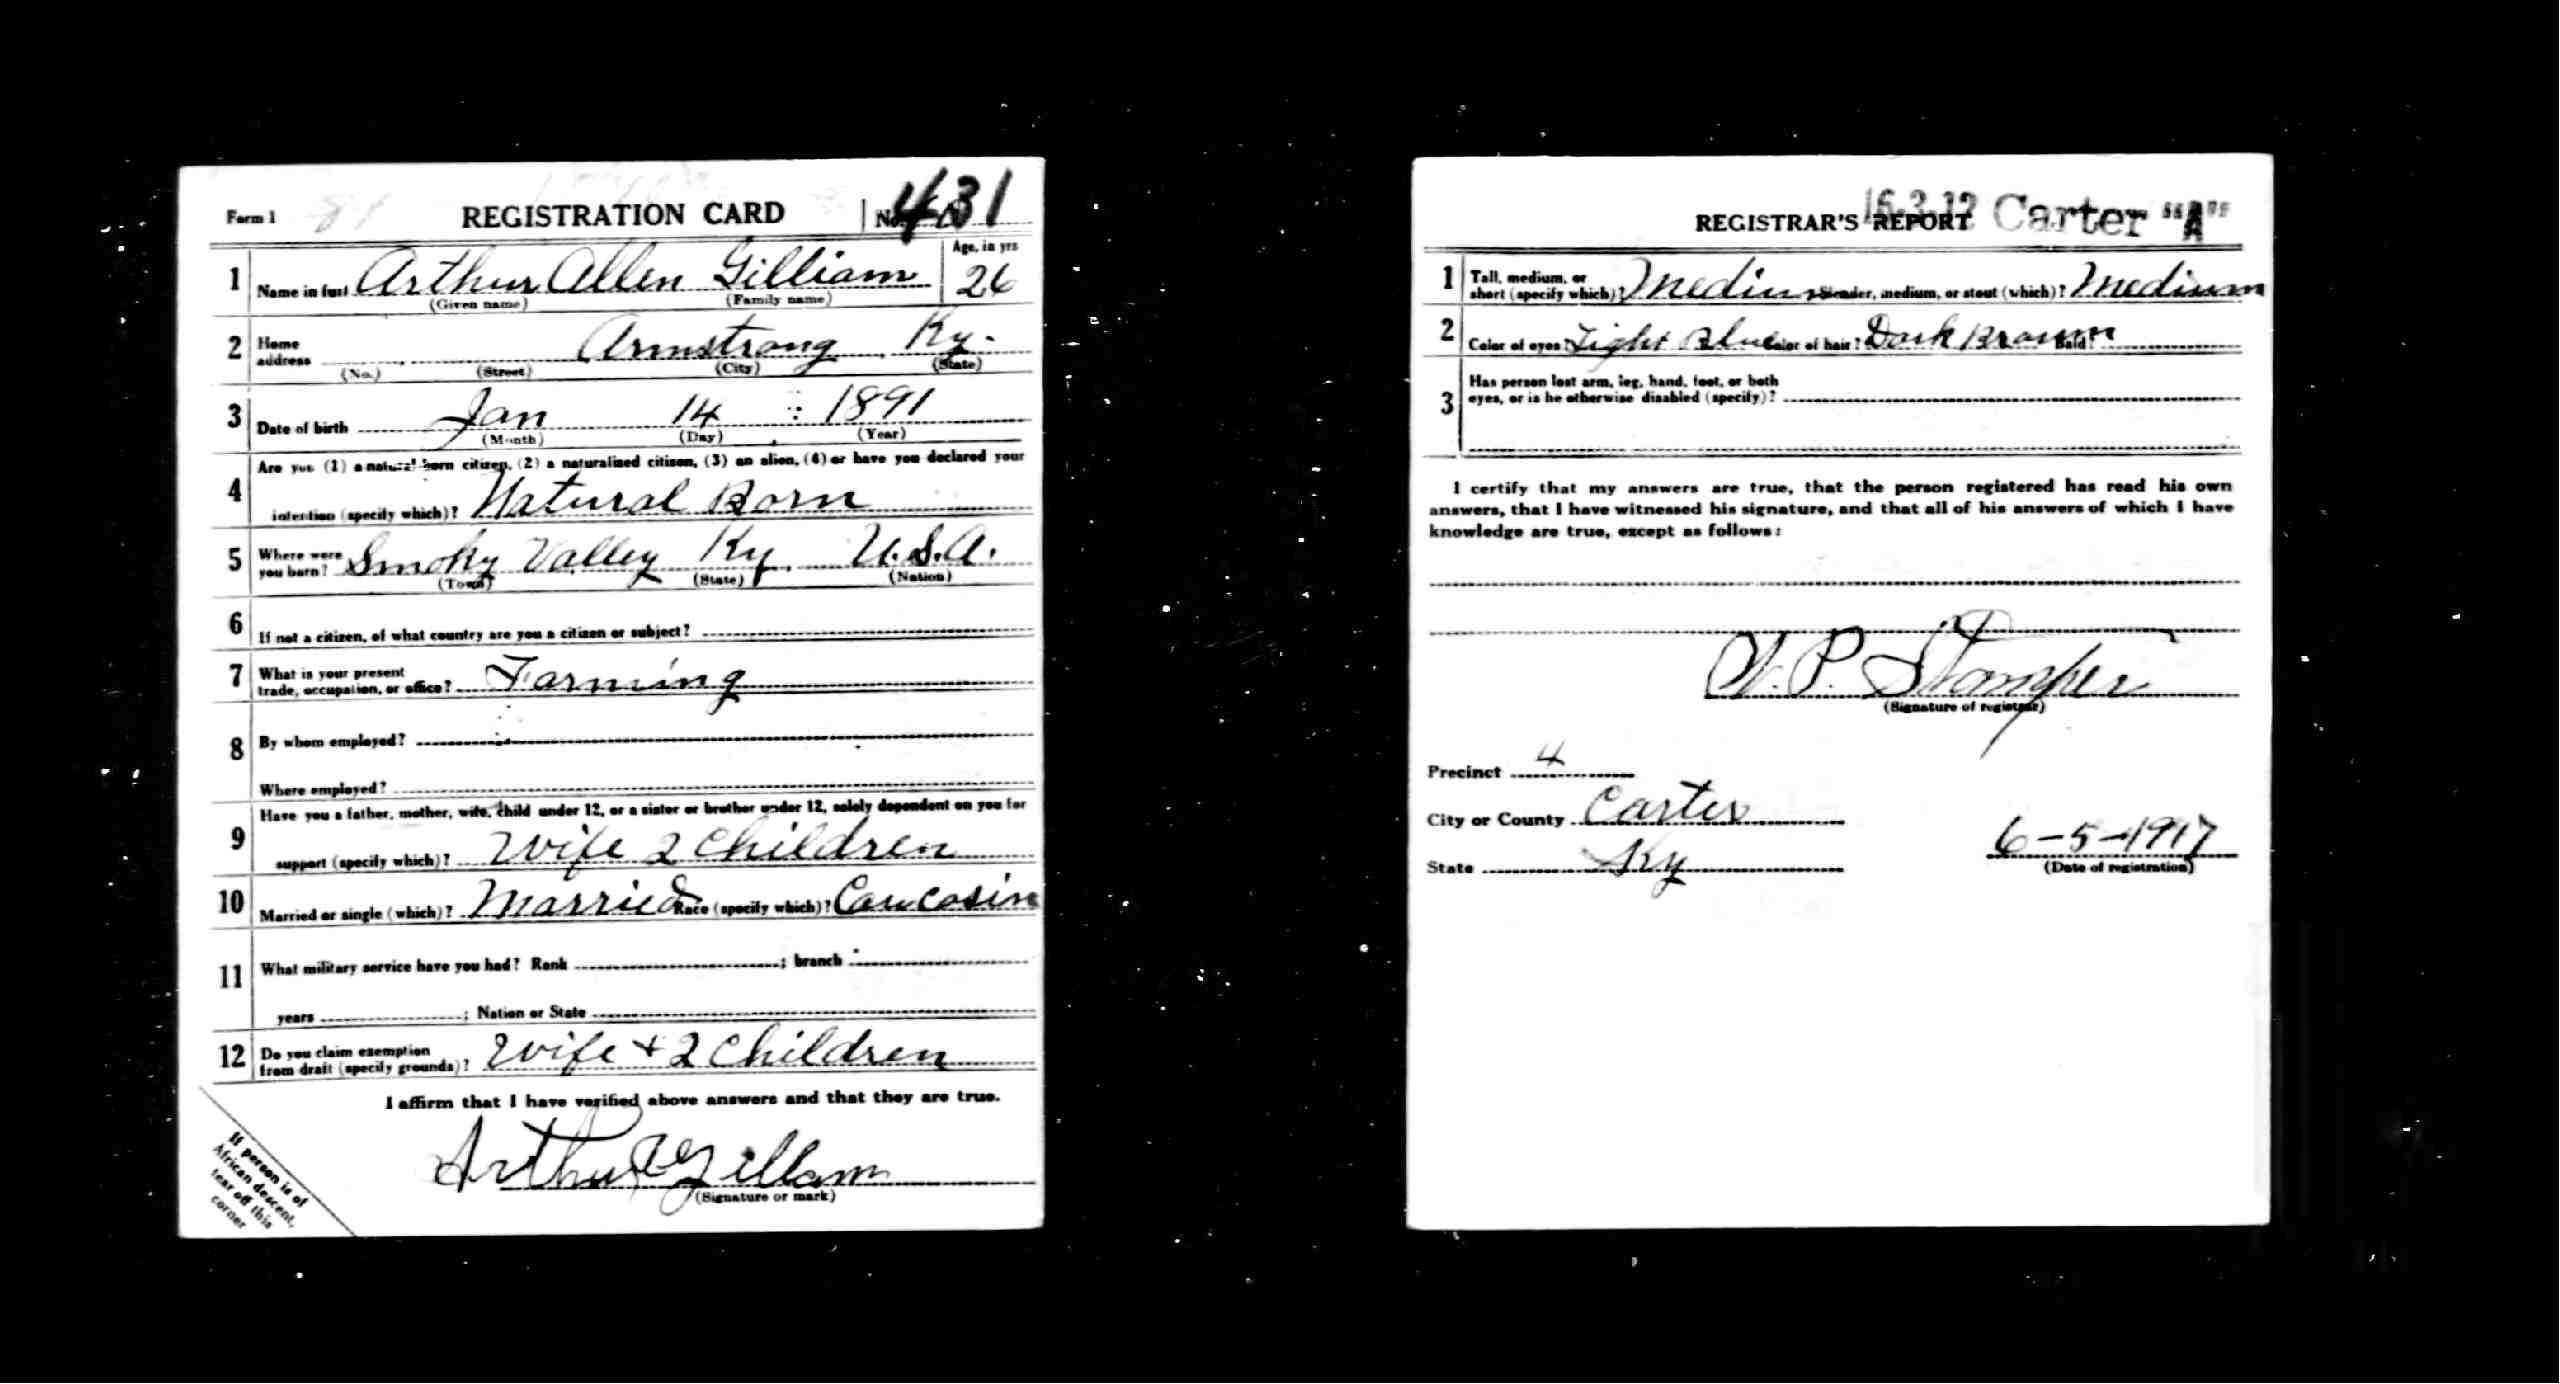 Form 1
REGISTRATION CARD No. 431
1 Name in full Arthur Allen Gilliam Age, in yrs 26
(Given name) (Family name)
2 Home address Armstrong Ky.
(No.) (Street) (City) (State)
3 Date of birth Jan 14 1891
(Month) (Day) (Year)
4 Are you (1) a natural born citizen, (2) a naturalized citizen, (3) an alien, (4) or have you declared your
intention (specify which)? Natural Born
5 Where were you born? Smoky Valley Ky. U.S.A.
(Town) (State) (Nation)
6 If not a citizen, of what country are you a citizen or subject?
7 What is your present
trade, occupation, or office? Farming
8 By whom employed?
Where employed?
9 Have you a father, mother, wife, child under 12, or a sister or brother under 12, solely dependent on you for
support (specify which)? Wife 2 Children
10 Married or single (which)? Married Race (specify which)? Caucasin
11 What military service have you had? Rank ; branch
years ; Nation or State
12 Do you claim exemption
from draft (specify grounds)? Wife + 2 Children
I affirm that I have verified above answers and that they are true.
Arthur A Gillam
(Signature or mark)
If person is of
African descent,
tear off this
corner
16-3-12 Carter "A"
REGISTRAR'S REPORT
1 Tall, medium, or
short (specify which)? Medium Slender, medium, or stout (which)? Medium
2 Color of eyes? Light Blue Color of hair? Dark Brown Bald?
3 Has person lost arm, leg, hand, foot, or both
eyes, or is he otherwise disabled (specify)?
I certify that my answers are true, that the person registered has read his own
answers, that I have witnessed his signature, and that all of his answers of which I have
knowledge are true, except as follows:
P. Stamper
(Signature of registrar)
Precinct 4
City or County Carter
State Ky
6-5-1917
(Date of registration)